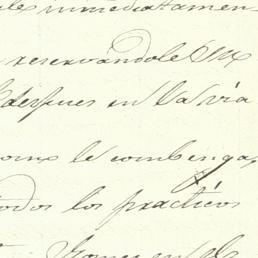 les inmediatamen
reservándole
despues en la via
como le combenga,
todos los practicos